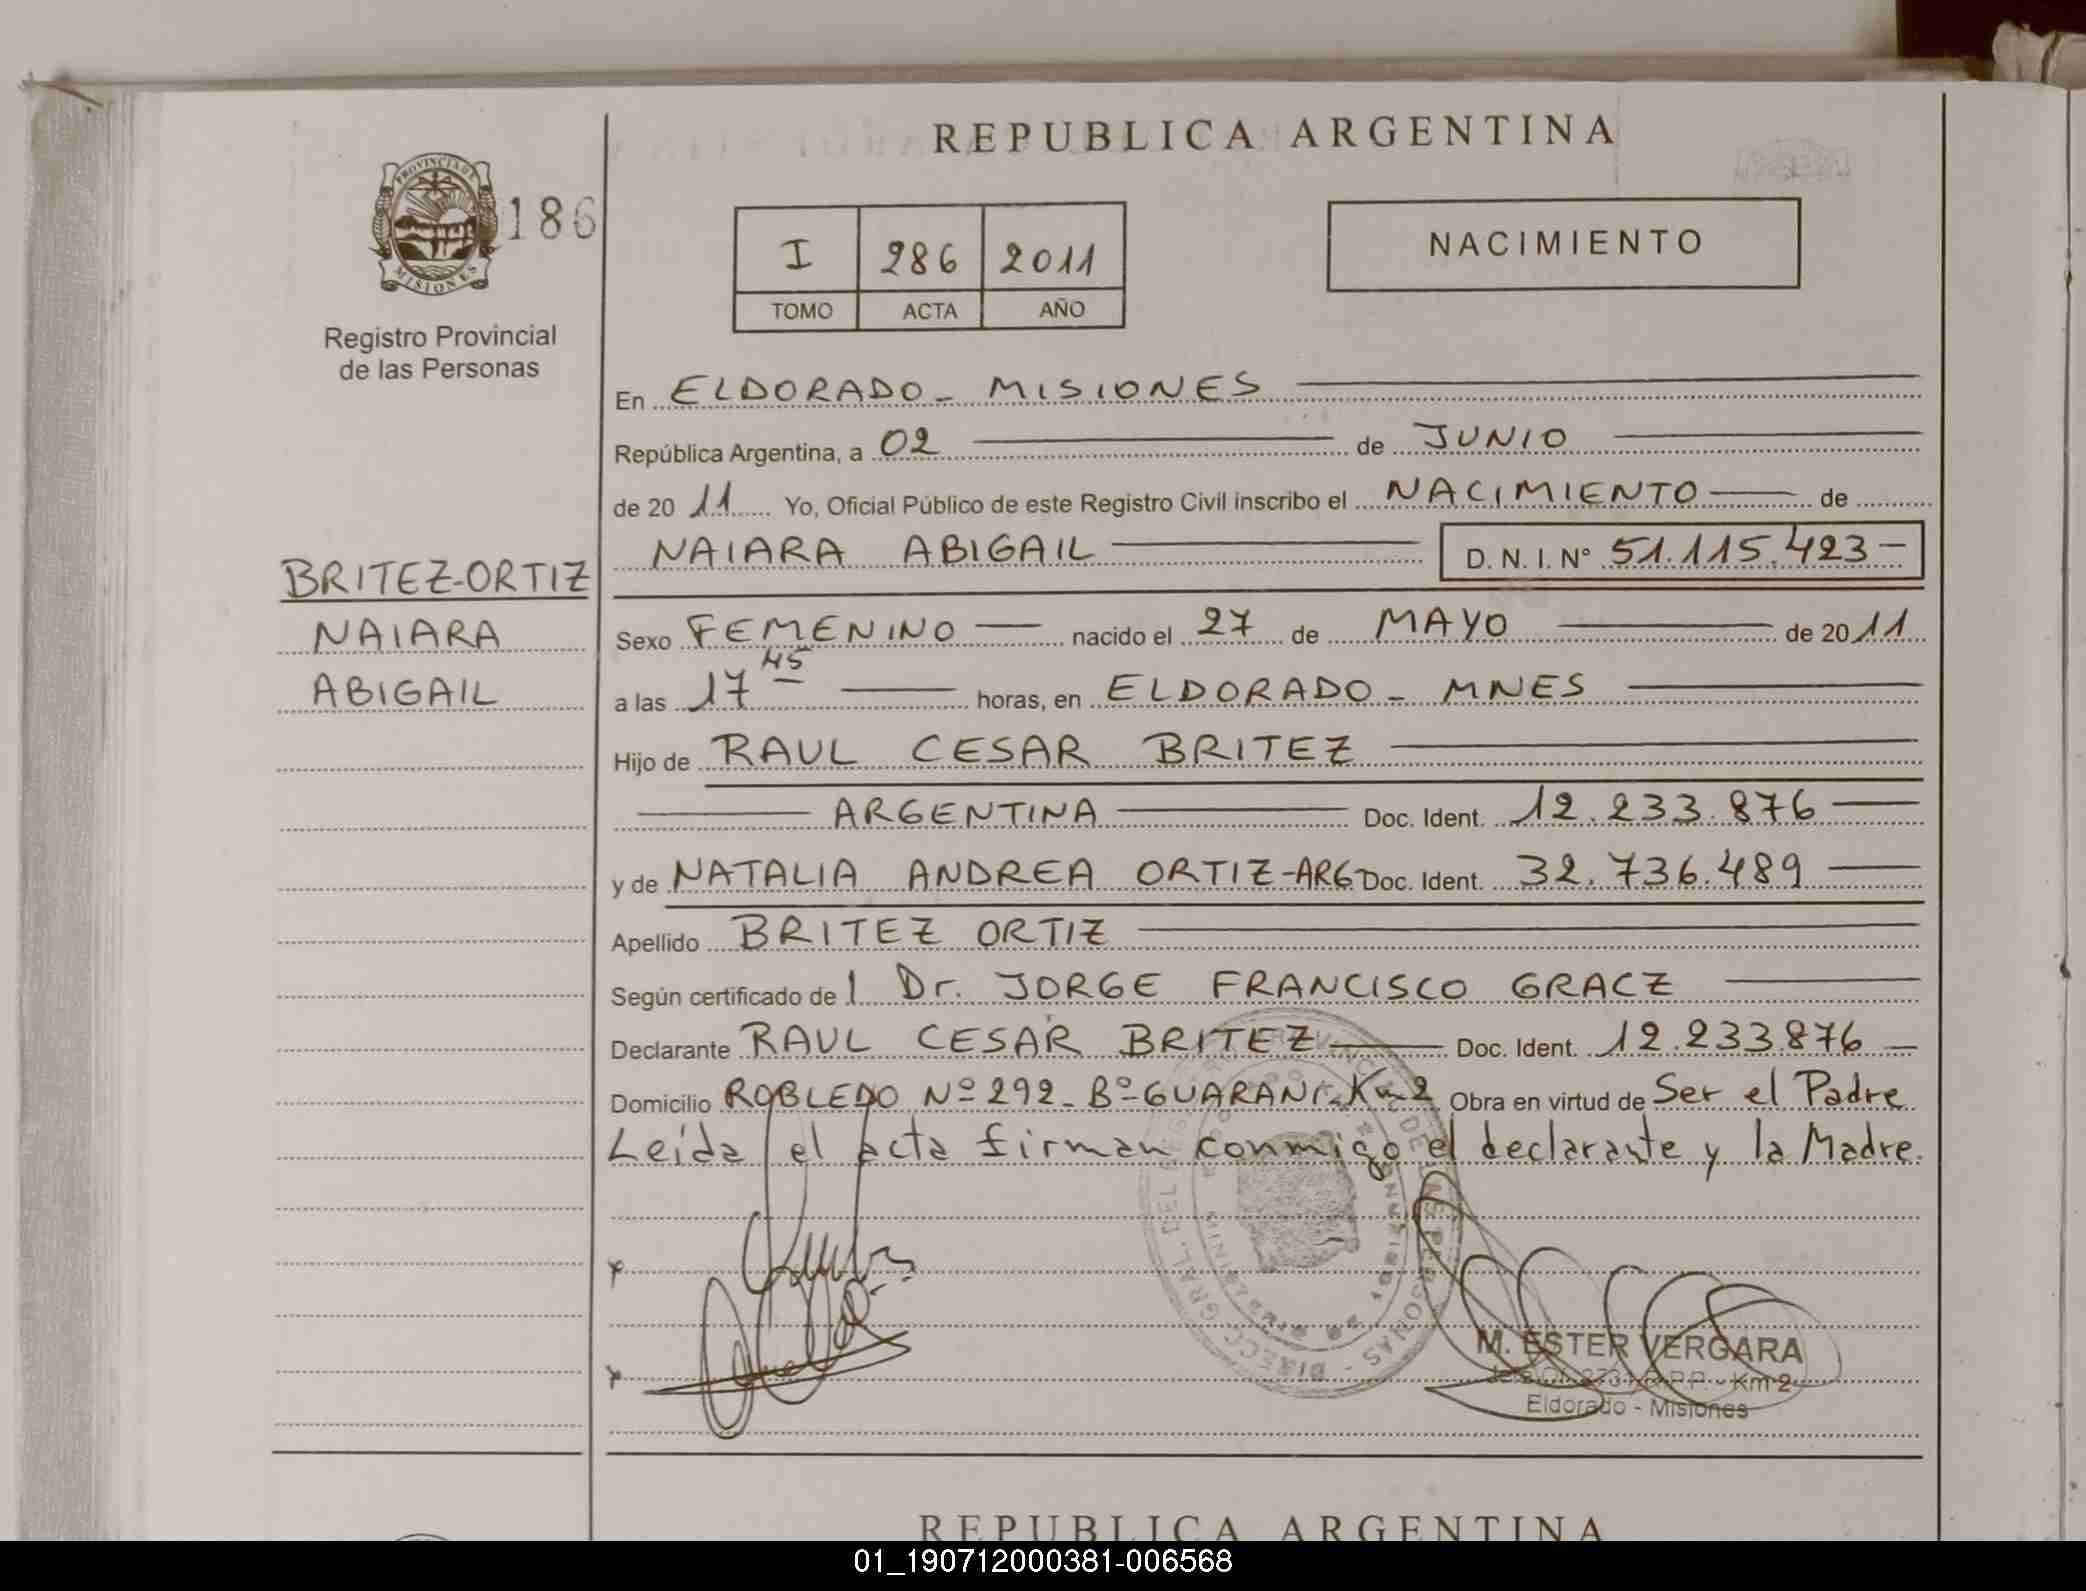 REPUBLICA ARGENTINA
PROVINCIA DE
MISIONES
186
I 286 2011
TOMO ACTA AÑO
NACIMIENTO
Registro Provincial
de las Personas
En ELDORADO - MISIONES
República Argentina, a 02 de JUNIO
de 2011 Yo, Oficial Público de este Registro Civil inscribo el NACIMIENTO de
NAIARA ABIGAIL D. N. I. N° 51.115.423
BRITEZ-ORTIZ
NAIARA
ABIGAIL
Sexo FEMENINO nacido el 27 de MAYO de 2011
a las 17 45 horas, en ELDORADO - MNES
Hijo de RAUL CESAR BRITEZ
ARGENTINA Doc. Ident. 12.233.876
y de NATALIA ANDREA ORTIZ-ARG Doc. Ident. 32.736.489
Apellido BRITEZ ORTIZ
Según certificado del Dr. JORGE FRANCISCO GRACZ
Declarante RAUL CESAR BRITEZ Doc. Ident. 12.233.876
Domicilio ROBLEDO Nº 292 - Bº GUARANI - Km 2 Obra en virtud de Ser el Padre
Leída el acta firman conmigo el declarante y la Madre.
M. ESTER VERGARA
R.P.P. - Km 2
Eldorado - Misiones
REPUBLICA ARGENTINA
01_190712000381-006568